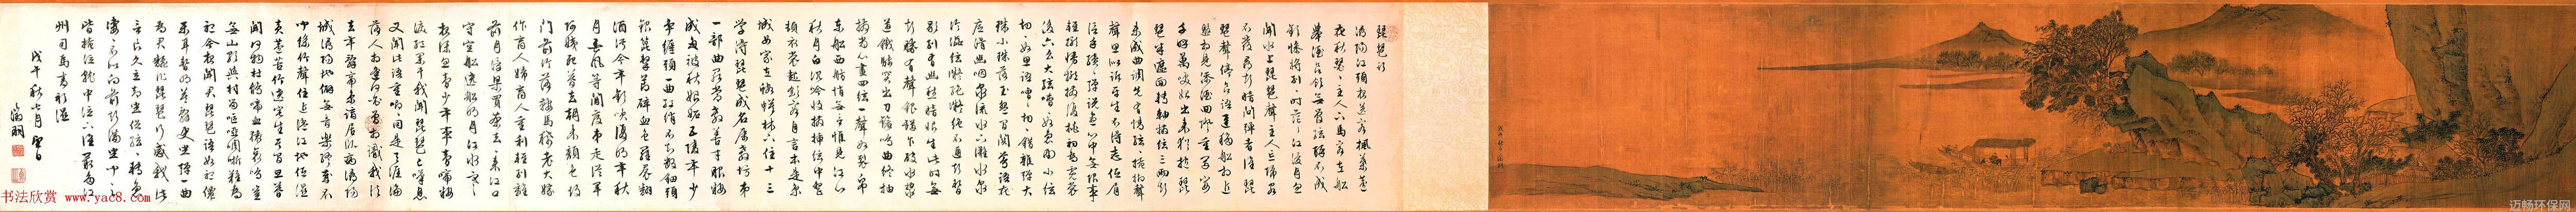 琵琶行
潯陽江頭夜送客楓葉荻
秋瑟瑟主人下馬客在船
舉酒欲飲無管絃醉不成
歡慘將別別時茫茫江浸月忽
聞水上琵琶聲主人忘歸客
不發尋聲暗問彈者誰琵
琶聲停欲語遲移船相近
邀相見添酒回燈重開宴
千呼萬喚始出來猶抱琵
琶半遮面轉軸撥絃三兩聲
未成曲調先有情絃絃掩抑聲
聲思似訴平生不得志低眉
信手續續彈說盡心中無限事
輕攏慢撚抹復挑初為霓裳
後六幺大絃嘈嘈如急雨小絃
切切如私語嘈嘈切切錯雜彈大
珠小珠落玉盤間關鶯語花
底滑幽咽泉流水下灘水泉
冷澀絃凝絕凝絕不通聲暫
歇別有幽愁暗恨生此時無
聲勝有聲銀瓶乍破水漿
迸鐵騎突出刀鎗鳴曲終抽
撥當心畫四絃一聲如裂帛
東船西舫悄無言惟見江心
秋月白沉吟收撥插絃中整
頓衣裳起斂容自言本是京
城女家在蝦蟆陵下住十三
學得琵琶成名屬教坊第
一部曲罷常教善才服妝
成每被秋娘妒五陵年少
爭纏頭一曲紅綃不知數鈿頭
銀篦擊節碎血色羅裙翻
酒污今年歡笑復明年秋
月春風等閒度弟走從軍
阿姨死暮去朝來顏色故
門前冷落鞍馬稀老大嫁
作商人婦商人重利輕別離
前月浮梁買茶去去來江口
守空船遶船明月江水寒夜
深忽夢少年事夢啼妝
淚紅闌干我聞琵琶已嘆息
又聞此語重唧唧同是天涯淪
落人相逢何必曾相識我從
去年辭帝京謫居臥病潯陽
城潯陽地僻無音樂終歲不
聞絲竹聲住近湓江地低濕
黃蘆苦竹遶宅生其間旦暮
聞何物杜鵑啼血猿哀鳴豈
無山歌與村笛嘔啞啁哳難為
聽今夜聞君琵琶語如聽仙
樂耳暫明莫辭更坐彈一曲
為君翻作琵琶行感我此
言良久立却坐促絃絃轉急
淒淒不似向前聲滿坐聞之
皆掩泣就中泣下誰最多江
州司馬青衫濕
戊午秋七月望日
书法欣赏 www.yac8.com
迈畅环保网